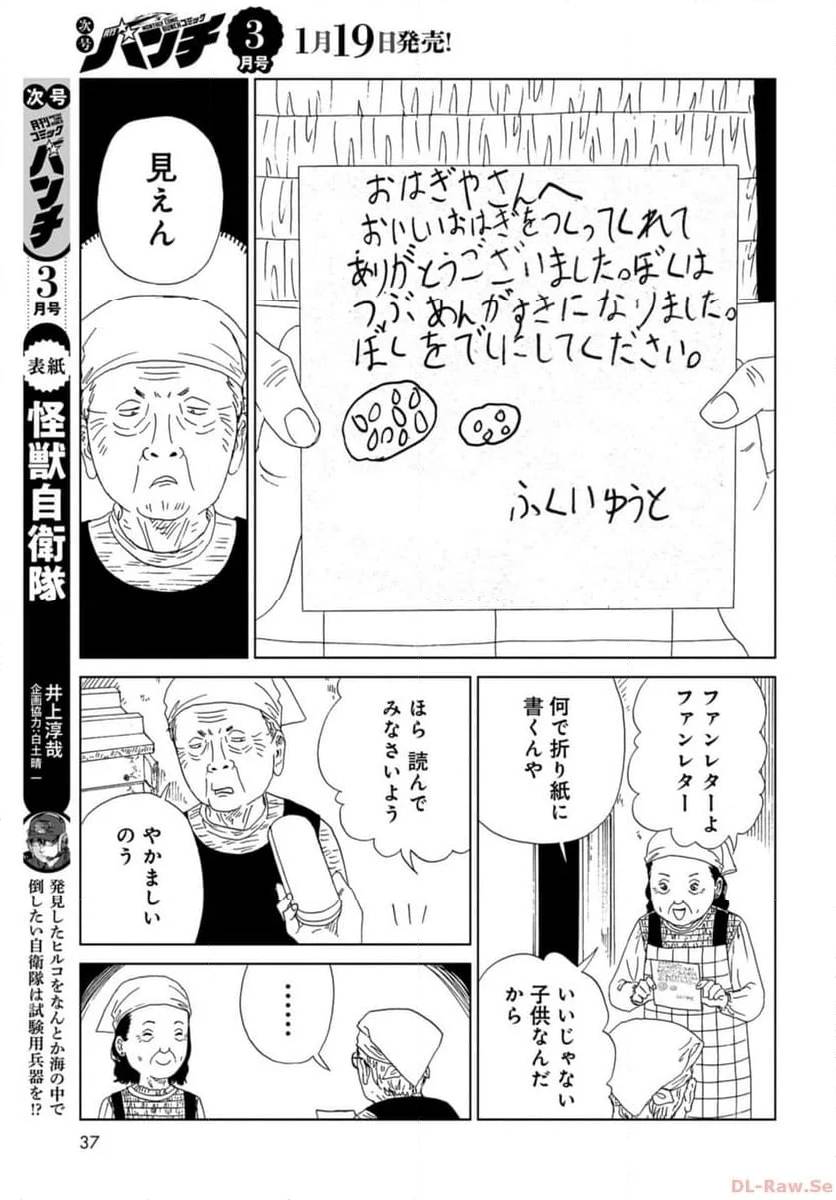 次号
月刊
MONTHLY COMIC BUNCH コミック
バンチ
3
月号
1月19日発売!
おはぎやさんへ
おいしいおはぎをつくってくれて
ありがとうございました。ぼくは
つぶあんめがすきになりました。
ぼくをでしにしてください。
ふくいゆうと
見えん
ファンレターよ
ファンレター
何で折り紙に
書くんや
いいじゃない
子供なんだ
から
ほら 読んで
みなさいよう
やかましい
のう
……
次号
月刊コミック
バンチ
3
月号
表紙
怪獣自衛隊
井上淳哉
企画協力:白土晴一
発見したヒルコをなんとか海の中で
倒したい自衛隊は試験用兵器を!?
37
DL-Raw.Se